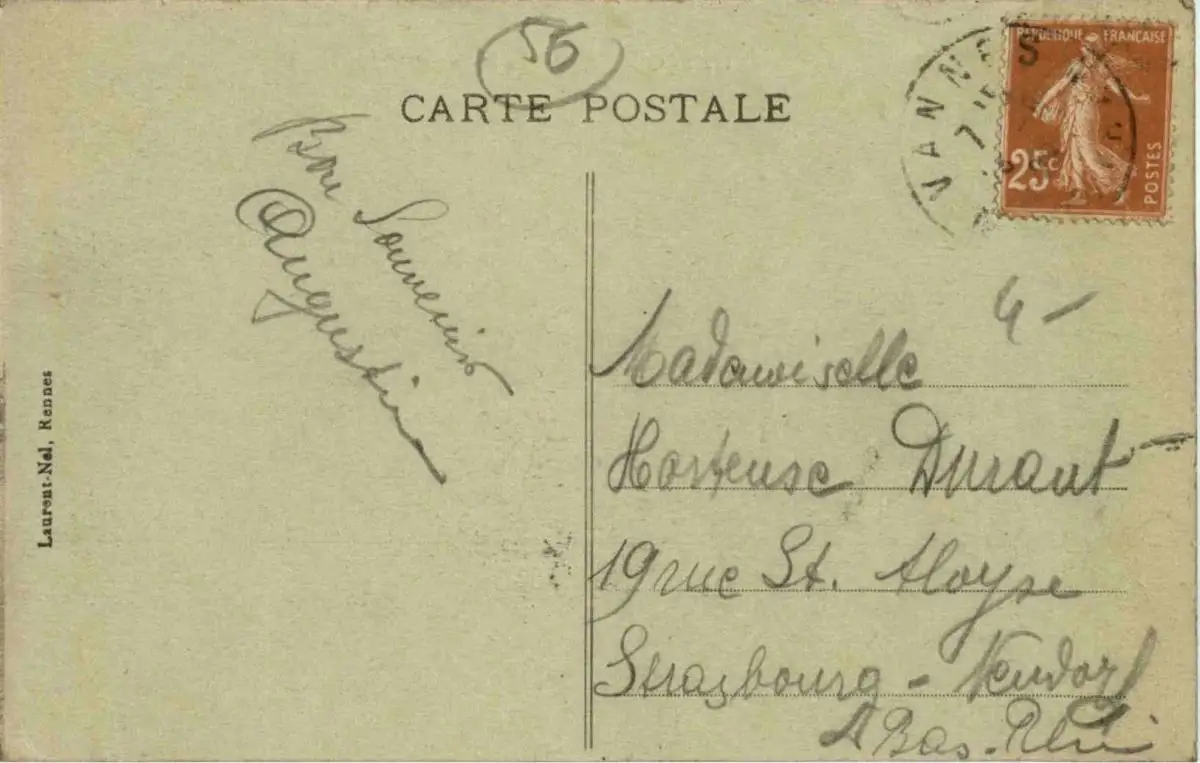 56
CARTE POSTALE
VANNES
RÉPUBLIQUE FRANÇAISE
25c
POSTES
Bon Souvenir
Augustin
4-
Mademoiselle
Hortense Durant
19 rue St. Aloyse
Strasbourg - Neudorf
Bas-Rhin
Laurent-Nel, Rennes